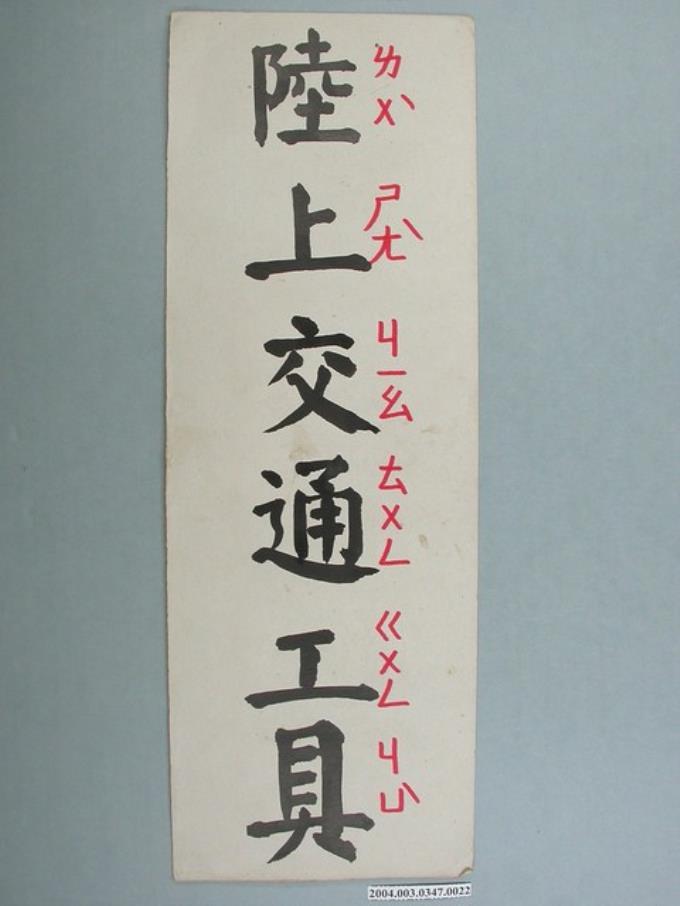 陸上交通工具
ㄌㄨˋ ㄕㄤˋ ㄐㄧㄠ ㄊㄨㄥ ㄍㄨㄥ ㄐㄩˋ
2004.003.0347.0022